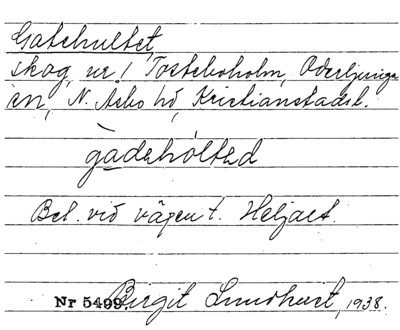 Gatehultet,
skog, nr 1 Tosteboholm, Oderljunga
sn, N. Åsbo hd, Kristianstads l.
gadehölted
Bel. vid vägen t. Heljalt.
Nr 5499. Birgit Lundhart, 1938.